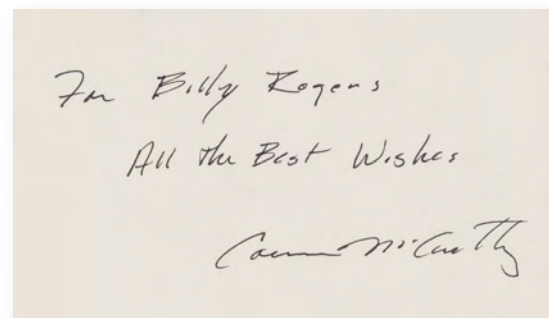 For Billy Rogers
All the Best Wishes
Cormac McCarthy